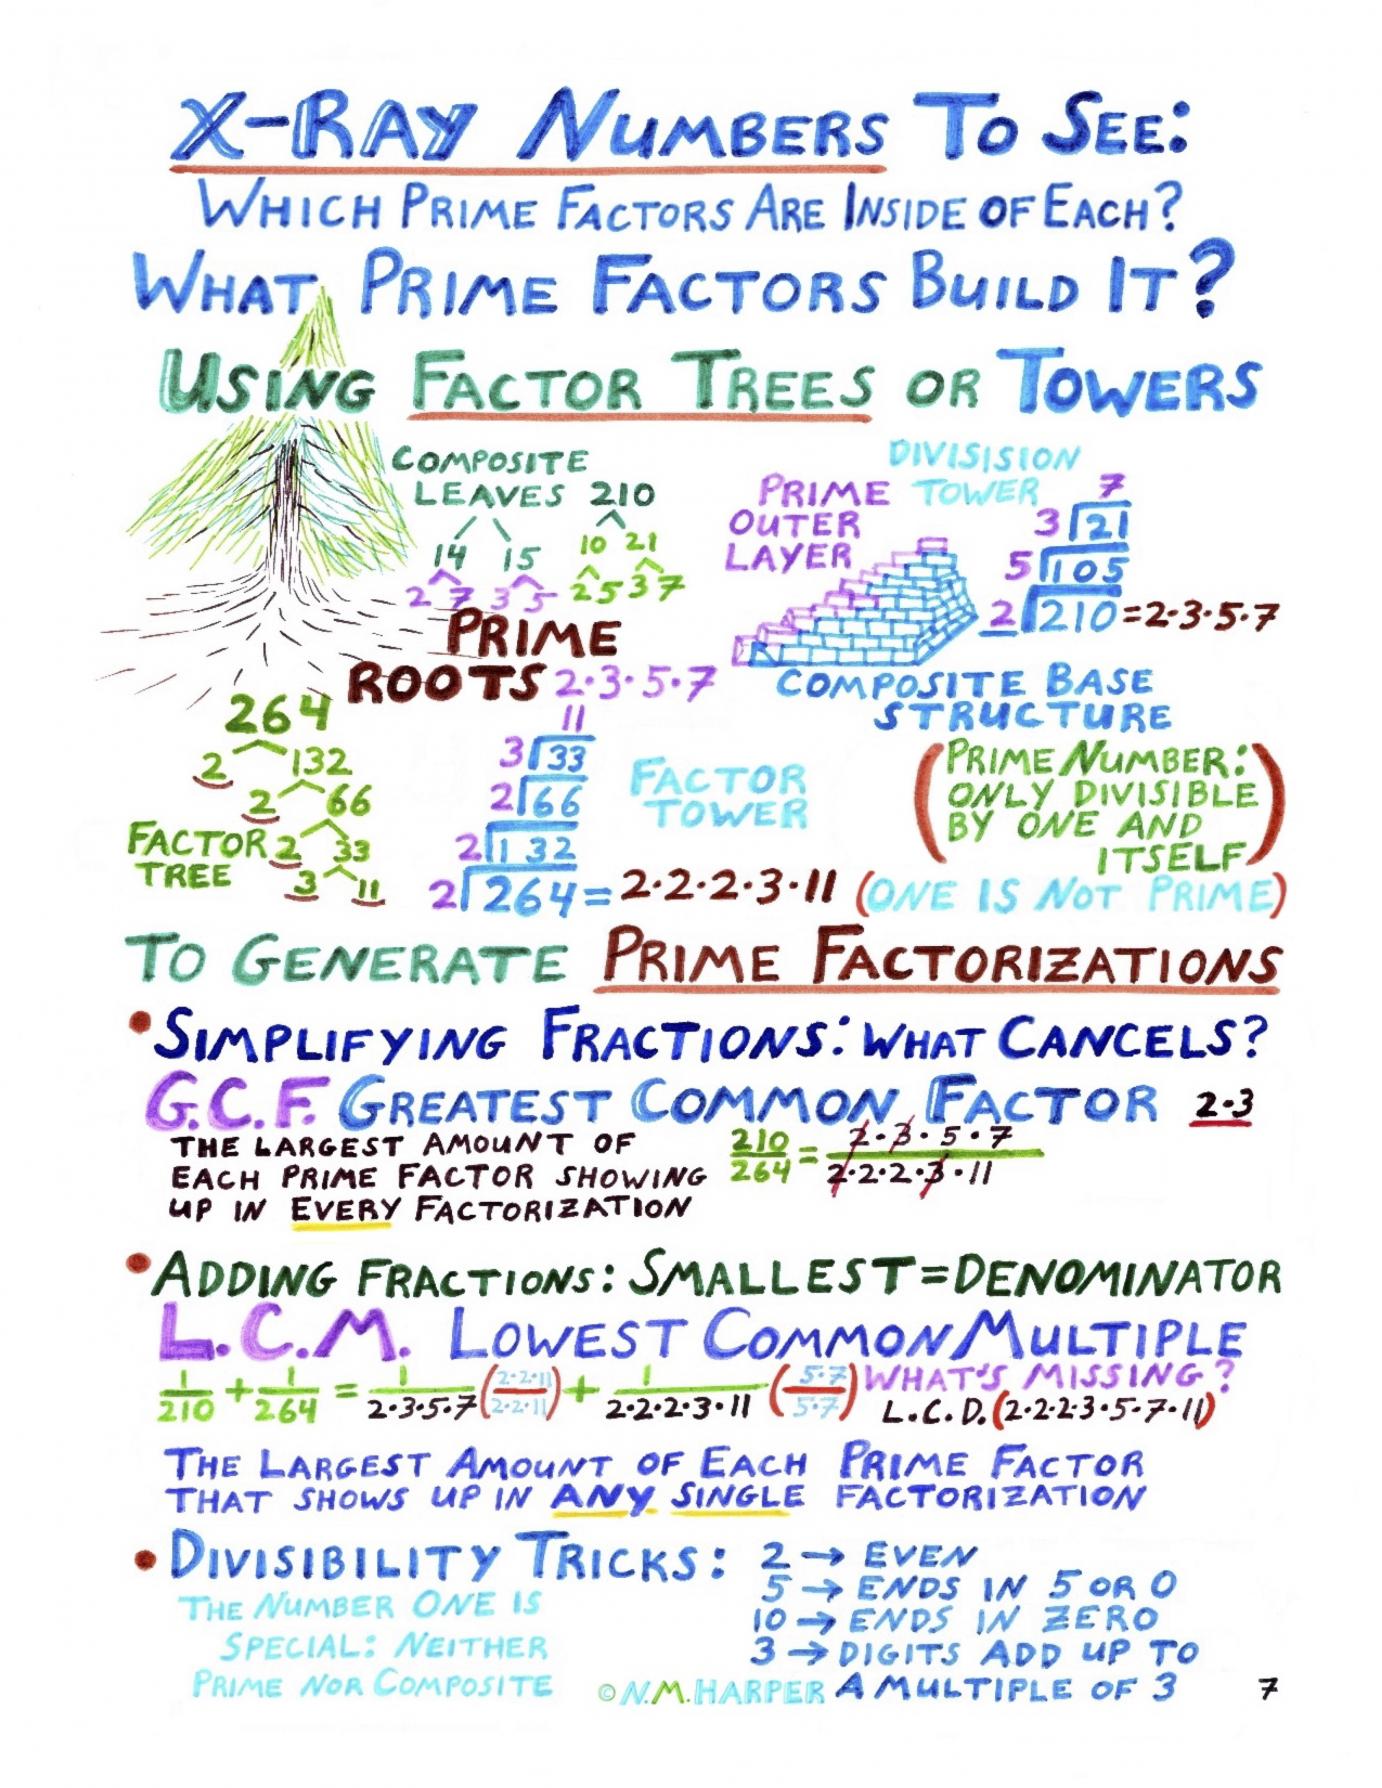 X-RAY NUMBERS TO SEE:
WHICH PRIME FACTORS ARE INSIDE OF EACH?
WHAT PRIME FACTORS BUILD IT?
USING FACTOR TREES OR TOWERS
COMPOSITE
LEAVES 210
14 15 10 21
2 7 3 5 2 5 3 7
PRIME
ROOTS 2·3·5·7
DIVISISION
TOWER
PRIME
OUTER
LAYER
7
3 21
5 105
2 210 = 2·3·5·7
COMPOSITE BASE
STRUCTURE
264
2 132
2 66
2 33
3 11
FACTOR
TREE
11
3 33
2 66
2 132
2 264 = 2·2·2·3·11
FACTOR
TOWER
(PRIME NUMBER:
ONLY DIVISIBLE
BY ONE AND
ITSELF)
(ONE IS NOT PRIME)
TO GENERATE PRIME FACTORIZATIONS
• SIMPLIFYING FRACTIONS: WHAT CANCELS?
G.C.F. GREATEST COMMON FACTOR 2·3
THE LARGEST AMOUNT OF
EACH PRIME FACTOR SHOWING
UP IN EVERY FACTORIZATION
210/264 = 2·3·5·7/2·2·2·3·11
• ADDING FRACTIONS: SMALLEST = DENOMINATOR
L.C.M. LOWEST COMMON MULTIPLE
1/210 + 1/264 = 1/2·3·5·7 (2·2·11/2·2·11) + 1/2·2·2·3·11 (5·7/5·7)
WHAT'S MISSING?
L.C.D. (2·2·2·3·5·7·11)
THE LARGEST AMOUNT OF EACH PRIME FACTOR
THAT SHOWS UP IN ANY SINGLE FACTORIZATION
• DIVISIBILITY TRICKS:
2 → EVEN
5 → ENDS IN 5 OR 0
10 → ENDS IN ZERO
3 → DIGITS ADD UP TO
A MULTIPLE OF 3
THE NUMBER ONE IS
SPECIAL: NEITHER
PRIME NOR COMPOSITE
© N.M. HARPER
7